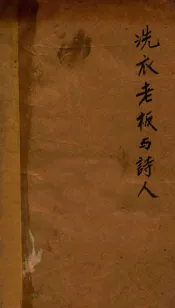 洗衣老板与詩人